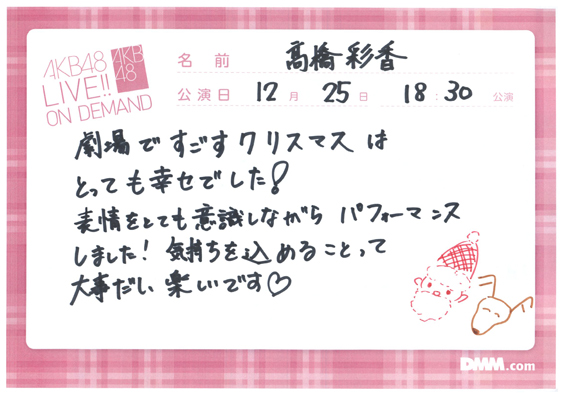 AKB48
LIVE!!
ON DEMAND
AKB
48
名前 高橋彩香
公演日 12月 25日 18:30 公演
劇場ですごすクリスマスは
とっても幸せでした!
表情をとても意識しながら パフォーマンス
しました! 気持ちを込めることって
大事だし 楽しいです♡
DMM.com